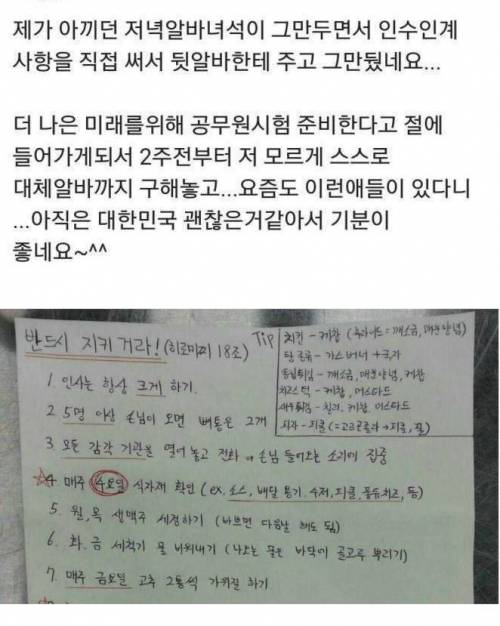 제가 아끼던 저녁알바녀석이 그만두면서 인수인계
사항을 직접 써서 뒷알바한테 주고 그만뒀네요...
더 나은 미래를위해 공무원시험 준비한다고 절에
들어가게되서 2주전부터 저 모르게 스스로
대체알바까지 구해놓고...요즘도 이런애들이 있다니
...아직은 대한민국 괜찮은거같아서 기분이
좋네요~^^
반드시 지키거라! (히로미찌 18조)
Tip
치킨 - 케찹 (후라이드 = 깨소금, 매콤양념)
탕 종류 - 가스버너 + 국자
깨소금, 매콤양념, 케찹
치즈스틱 - 케찹, 머스타드
새우튀김 - 칠리, 케찹, 머스타드
피자 - 피클
1. 인사는 항상 크게 하기.
2. 5명 이상 손님이 오면 뻥튀기 2개
3. 모든 감각 기관을 열어 놓고 전화 or 손님 들어오는 소리에 집중
☆4. 매주 수요일 식자재 확인 (ex. 소스, 배달 용기, 수저, 피클, 치즈, 등)
5. 월, 목 생맥주 세척하기 (바쁘면 다음날 해도 됨)
6. 화, 금 세척기 물 바꿔내기 (나오는 물은 바닥에 골고루 뿌리기)
7. 매주 금요일 고추 2통씩 가위질 하기